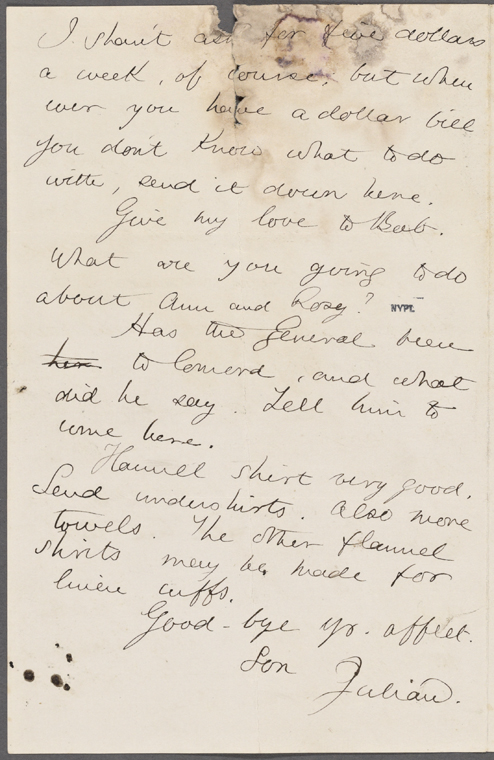 I shan't ask for five dollars
a week, of course, but when
ever you have a dollar bill
you don't know what to do
with, send it down here.
Give my love to Beb.
What are you going to do
about Ann and Rosy?
NYPL
Has the General been
to Concord, and what
did he say. Tell him to
come here.
Flannel shirt very good.
Send undershirts. Also more
towels. The other flannel
shirts may be made for
linen cuffs.
Good-bye yr. affect.
Son
Julian.